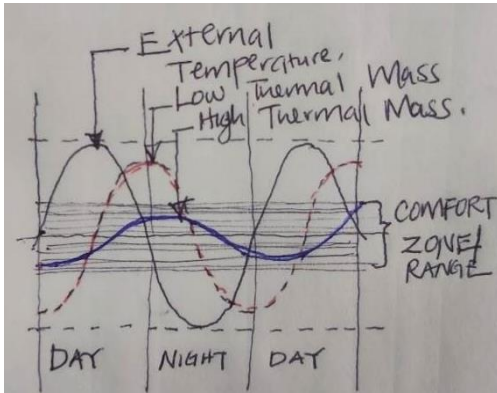 External
Temperature.
Low Thermal Mass
High Thermal Mass.
COMFORT
ZONE/
RANGE
DAY
NIGHT
DAY